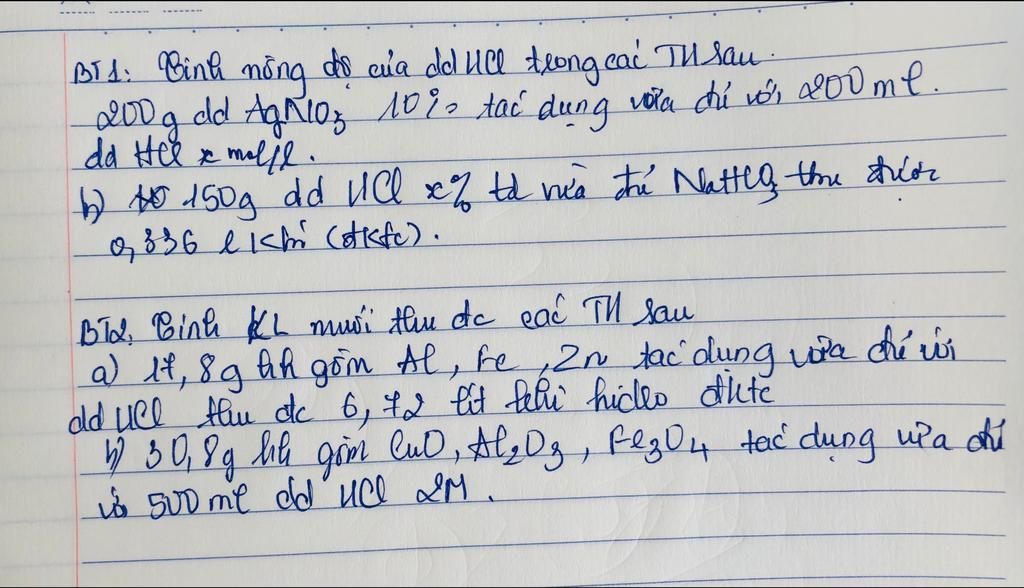 BT1: Tính nồng độ của dd HCl trong các TH sau.
200g dd AgNO3 10% tác dụng vừa đủ với 200 ml.
dd HCl x mol/l.
b) 150g dd HCl x% td vừa đủ NaHCO3 thu được
0,336 l khí (đktc).
BT2. Tính KL muối thu đc các TH sau
a) 17,8g hh gồm Al, Fe, Zn tác dụng vừa đủ với
dd HCl thu đc 6,72 lít khí hidro đktc
b) 30,8g hh gồm CuO, Al2O3, Fe3O4 tác dụng vừa đủ
với 500 ml dd HCl 2M.